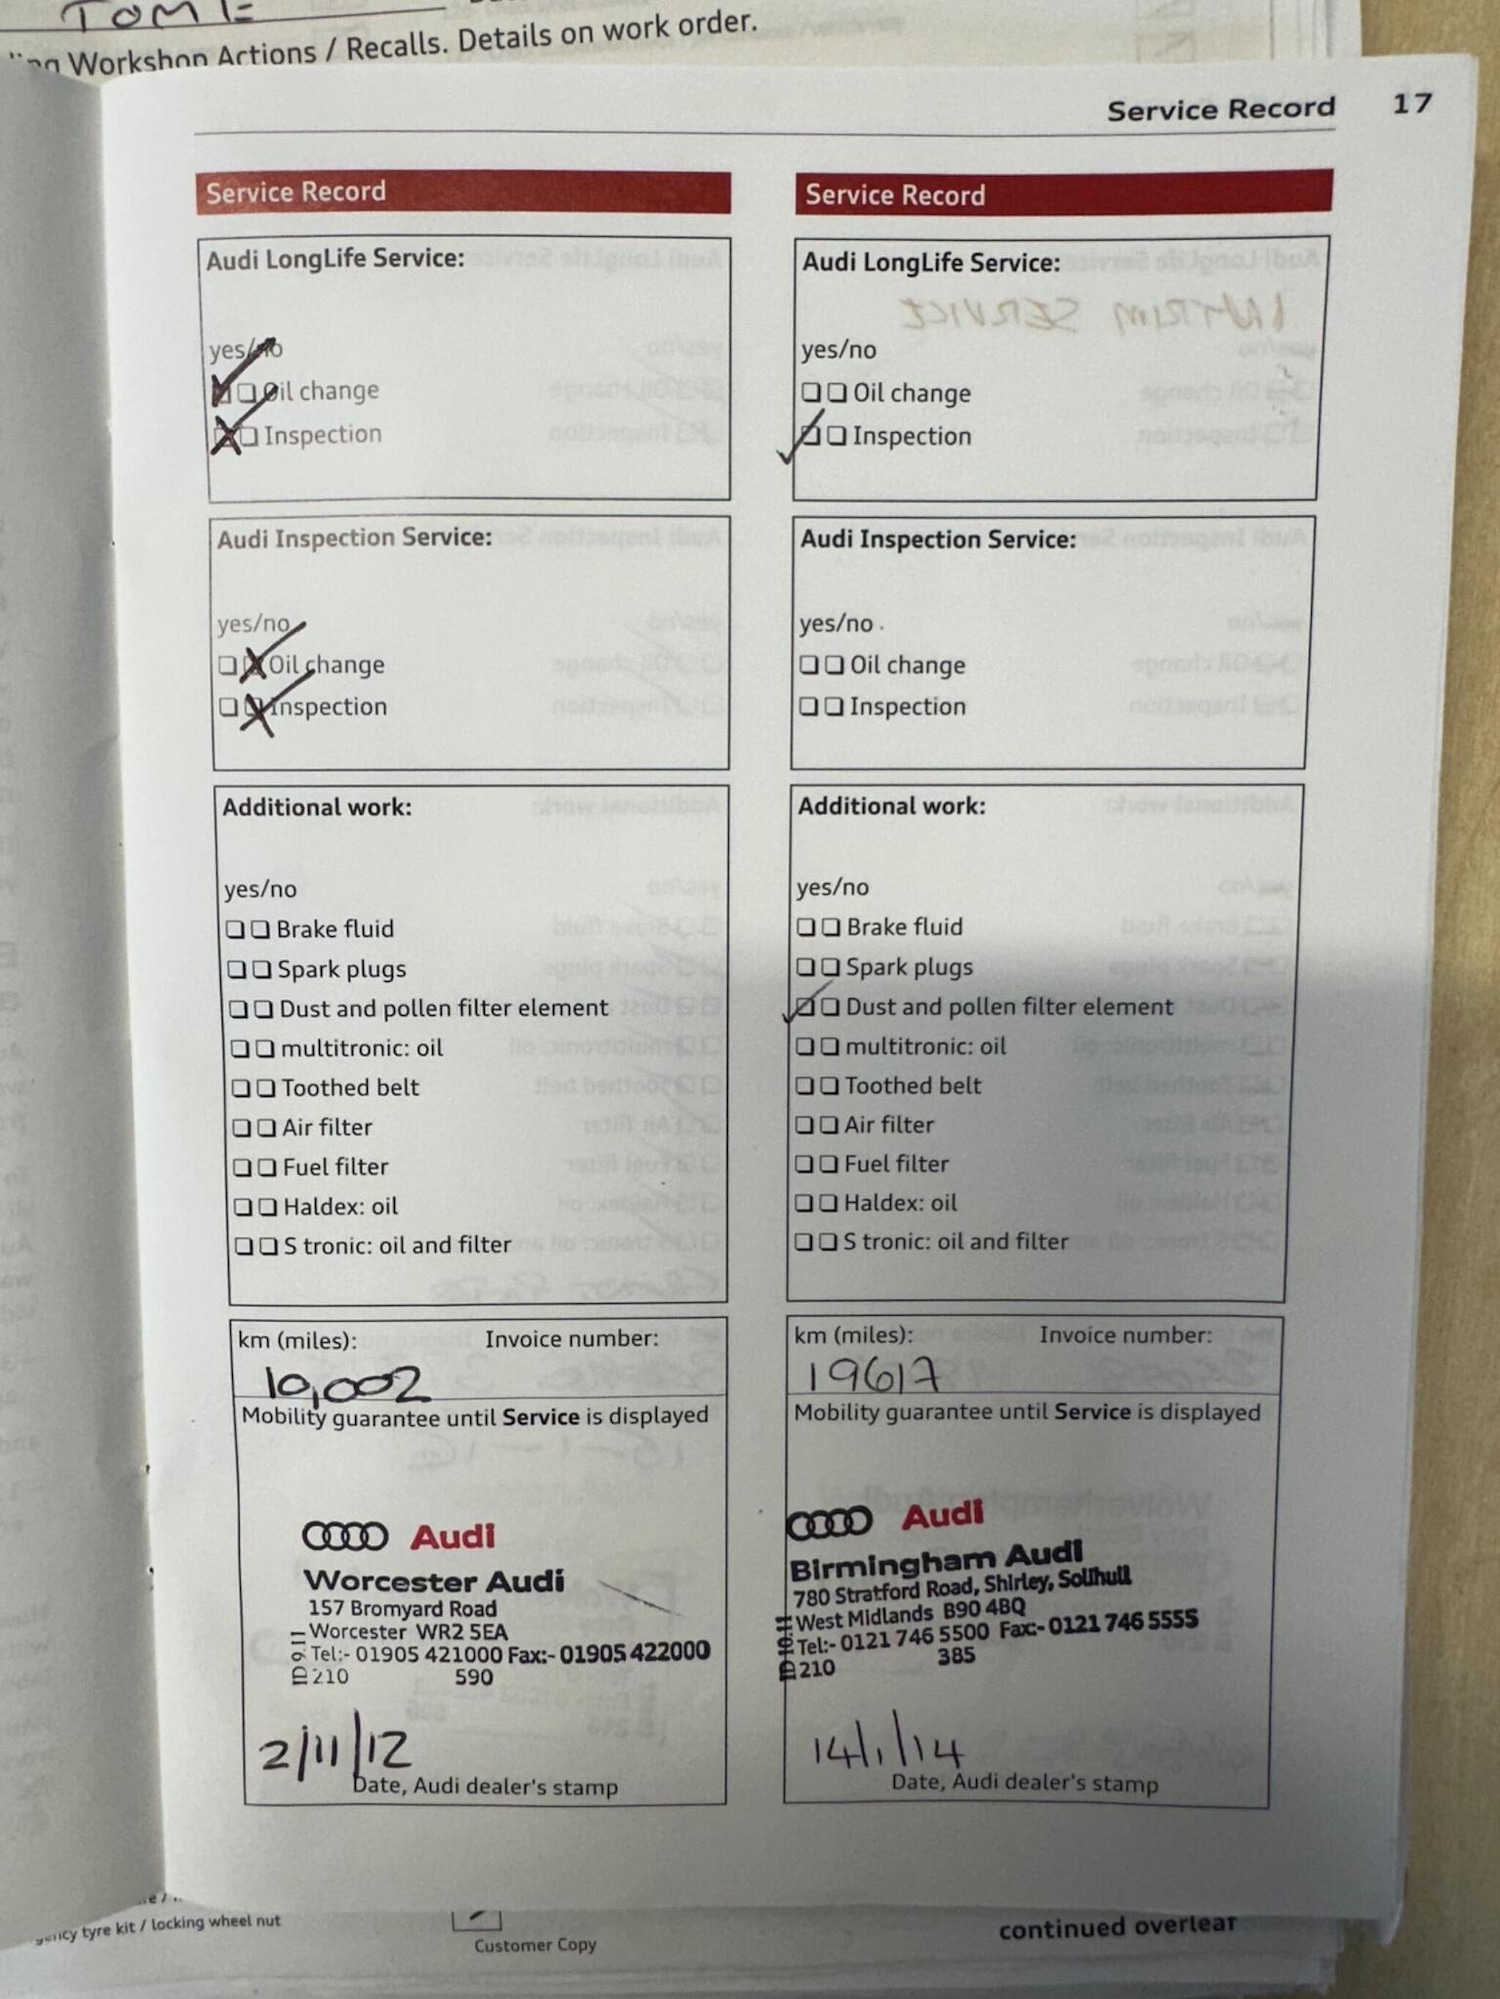 TOM
Workshop Actions / Recalls. Details on work order.
Service Record 17
Service Record
Audi LongLife Service:
yes/no
Oil change
Inspection
Audi Inspection Service:
yes/no
Oil change
Inspection
Additional work:
yes/no
Brake fluid
Spark plugs
Dust and pollen filter element
multitronic: oil
Toothed belt
Air filter
Fuel filter
Haldex: oil
S tronic: oil and filter
km (miles): Invoice number:
10,002
Mobility guarantee until Service is displayed
Audi
Worcester Audi
157 Bromyard Road
Worcester WR2 5EA
Tel:- 01905 421000 Fax:- 01905 422000
210 590
2/11/12
Date, Audi dealer's stamp
Service Record
Audi LongLife Service:
INTRIM SERVICE
yes/no
Oil change
Inspection
Audi Inspection Service:
yes/no
Oil change
Inspection
Additional work:
yes/no
Brake fluid
Spark plugs
Dust and pollen filter element
multitronic: oil
Toothed belt
Air filter
Fuel filter
Haldex: oil
S tronic: oil and filter
km (miles): Invoice number:
19617
Mobility guarantee until Service is displayed
Audi
Birmingham Audi
780 Stratford Road, Shirley, Solihull
West Midlands B90 4BQ
Tel:- 0121 746 5500 Fax:- 0121 746 5555
210 385
14/1/14
Date, Audi dealer's stamp
tyre kit / locking wheel nut
Customer Copy
continued overleaf